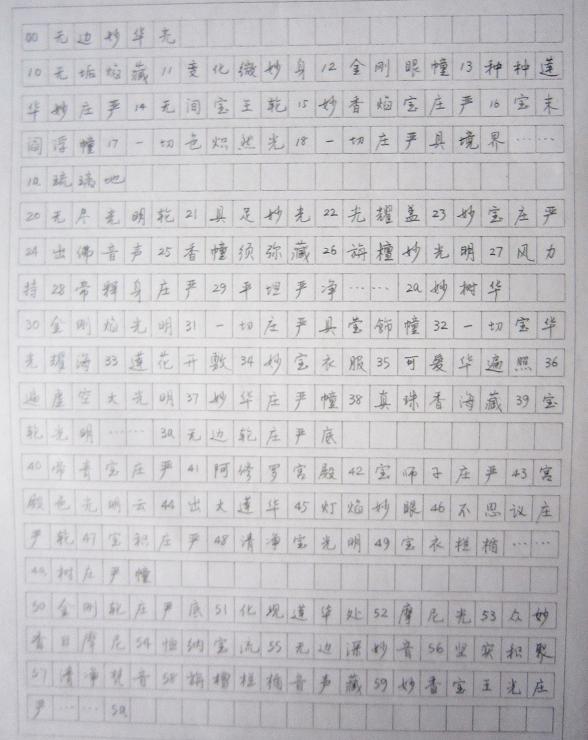 00 无边妙华光
10 无垢焰藏 11 变化微妙身 12 金刚眼幢 13 种种莲
华妙庄严 14 无间宝王轮 15 妙香焰宝庄严 16 宝末
阎浮幢 17 一切色炽然光 18 一切庄严具境界……
1a 琉璃地
20 无尽光明轮 21 具足妙光 22 光耀盖 23 妙宝庄严
24 出佛音声 25 香幢须弥藏 26 旃檀妙光明 27 风力
持 28 帝释身庄严 29 平坦严净…… 2a 妙树华
30 金刚焰光明 31 一切庄严具莹饰幢 32 一切宝华
光耀海 33 莲花开敷 34 妙宝衣服 35 可爱华遍照 36
遍虚空大光明 37 妙华庄严幢 38 真珠香海藏 39 宝
轮光明…… 3a 无边轮庄严底
40 常青宝庄严 41 阿修罗宫殿 42 宝师子庄严 43 宫
殿色光明云 44 出大莲华 45 灯焰妙眼 46 不思议庄
严轮 47 宝积庄严 48 清净宝光明 49 宝衣栏楯……
4a 树庄严幢
50 金刚轮庄严底 51 化现莲华处 52 摩尼光 53 众妙
香日摩尼 54 恒纳宝流 55 无边深妙音 56 坚实积聚
57 清净梵音 58 旃檀栏楯音声藏 59 妙香宝王光庄
严…… 5a